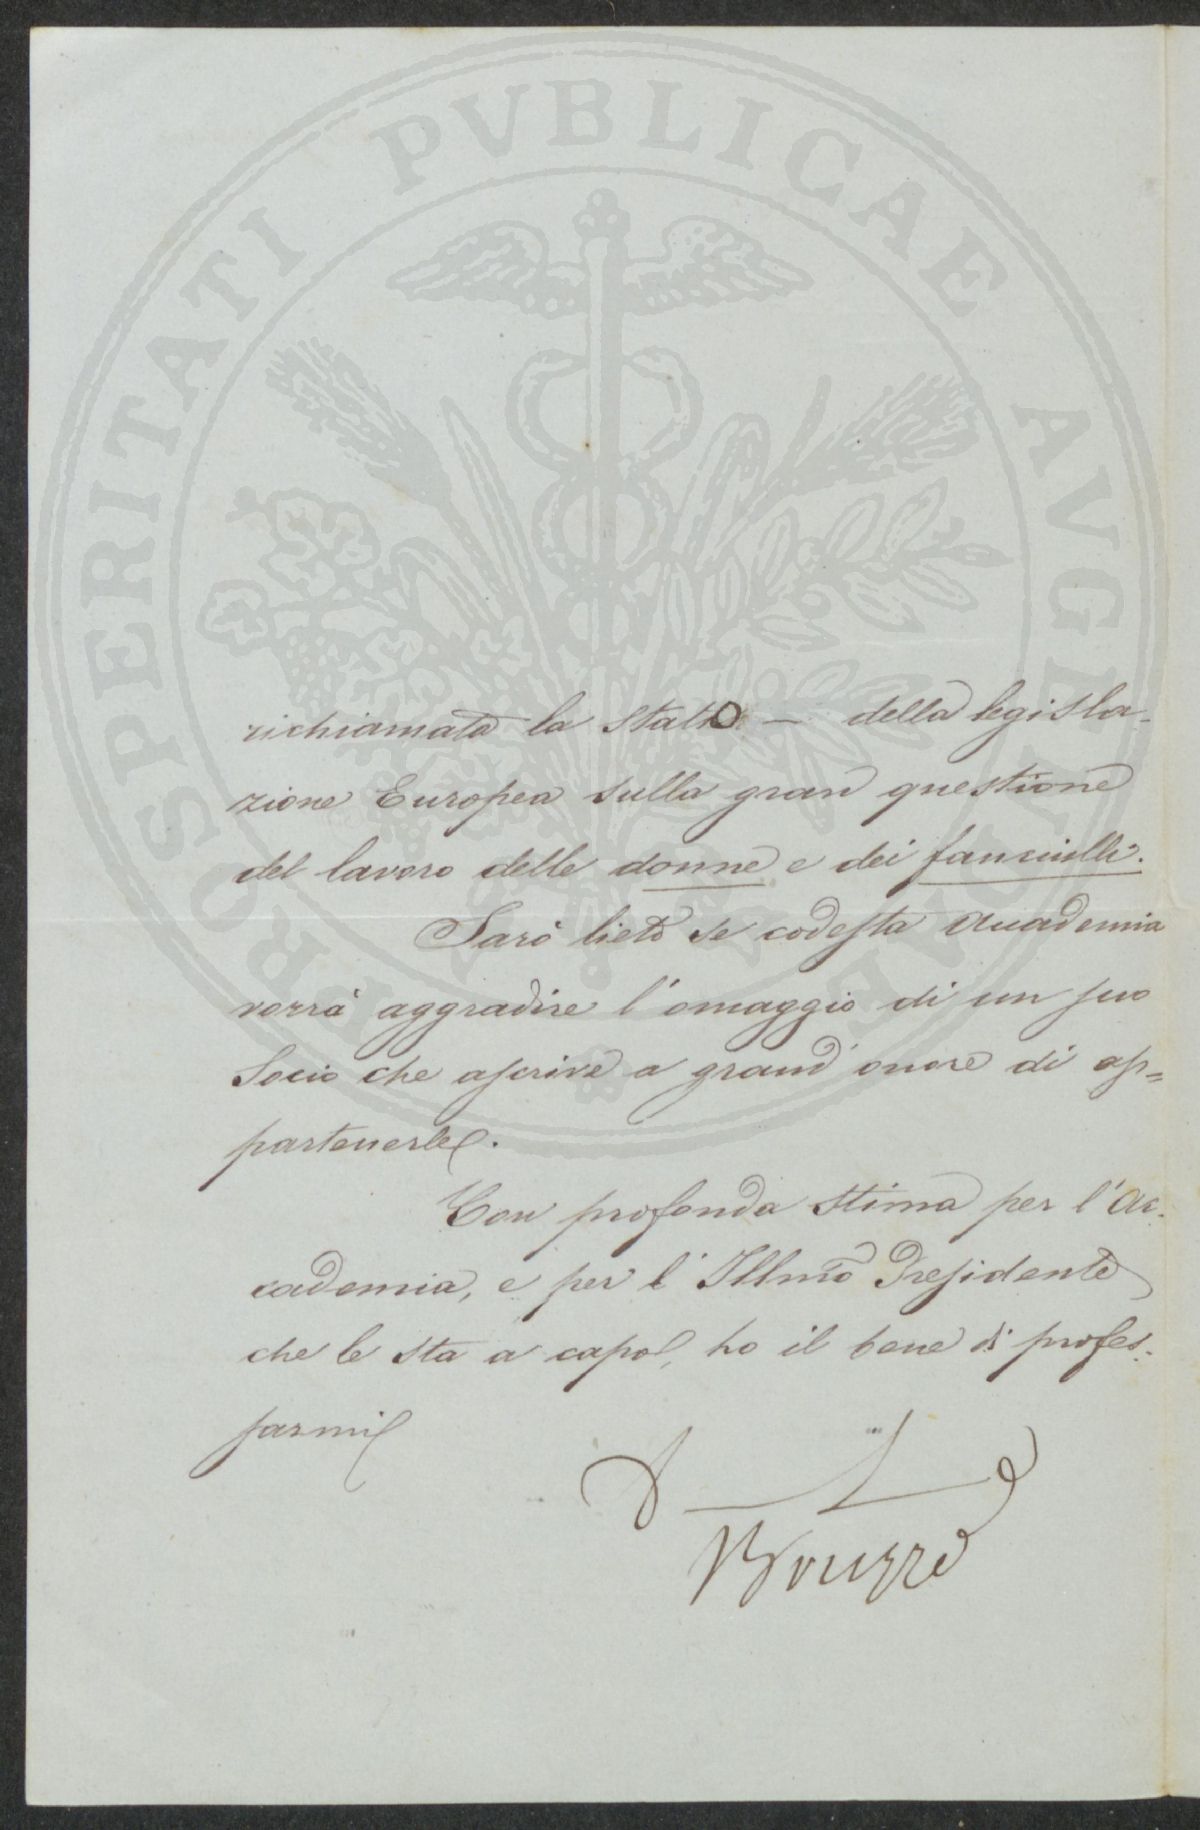 PROSPERITATI PVBLICAE AVGENDAE
richiamata la stato — della legisla-
zione Europea sulla gran questione
del lavoro delle donne e dei fanciulli.
Sarò lieto se codesta Accademia
vorrà aggradire l'omaggio di un suo
Socio che ascrive a grand'onore di ap=
partenerle.
Con profonda stima per l'Ac-
cademia, e per l'Illmo Presidente
che le sta a capo, ho il bene di profes-
sarmi